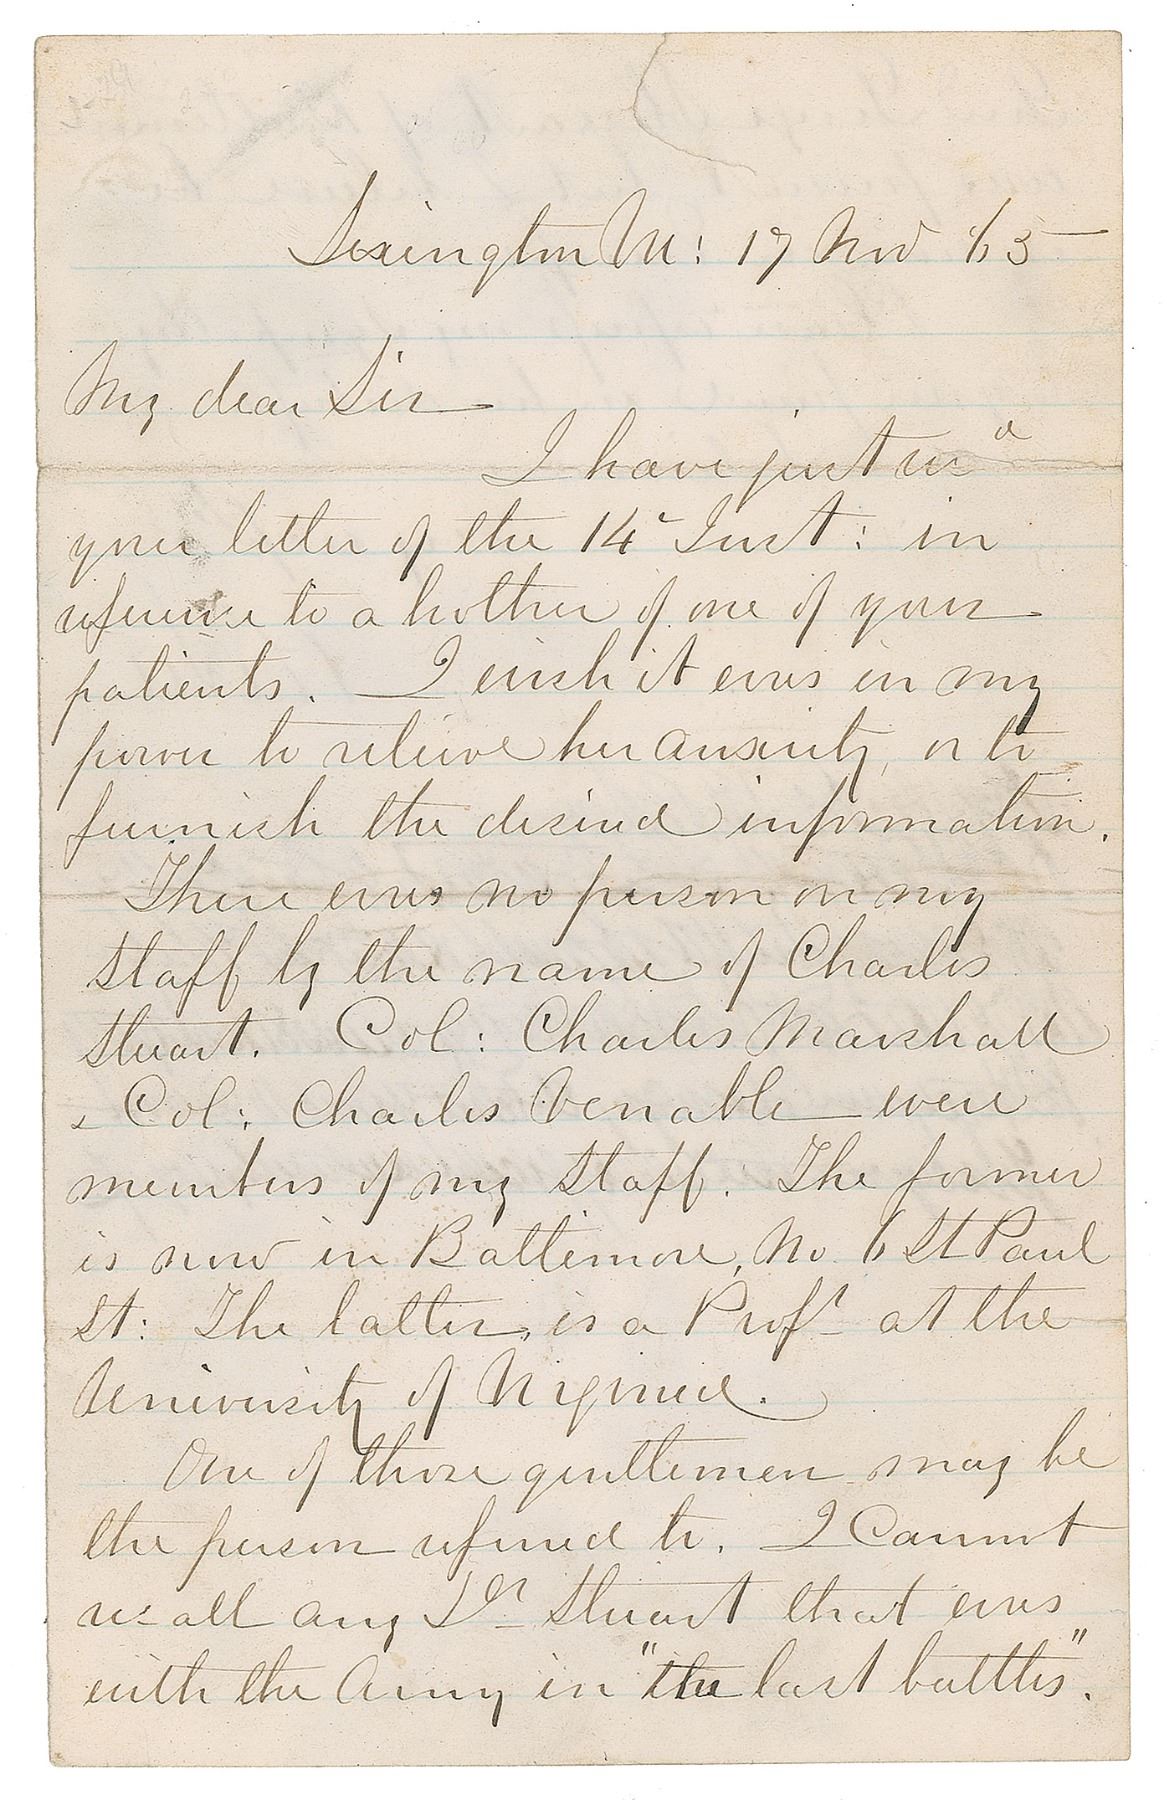 Lexington Va: 17 Nov '65
My dear Sir
I have just recd
your letter of the 14th Inst: in
reference to a brother of one of your
patients. I wish it was in my
power to relieve her anxiety, or to
furnish the desired information.
There was no person on my
Staff by the name of Charles
Stuart. Col: Charles Marshall
& Col: Charles Venable were
members of my Staff. The former
is now in Baltimore, No 6 St Paul
St: The latter, is a Profr at the
University of Virginia.
One of those gentlemen may be
the person referred to. I Cannot
recall any Dr Stuart that was
with the Army in "the last battles".